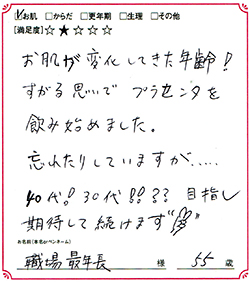 ☑お肌 □からだ □更年期 □生理 □その他
[満足度]☆★☆☆☆
お肌が変化してきた年齢!
すがる思いで プラセンタを
飲み始めました。
忘れたりしていますが.....
40代!30代!!?? 目指し
期待して続けます"
お名前(本名orペンネーム)
職場最年長 様 55 歳